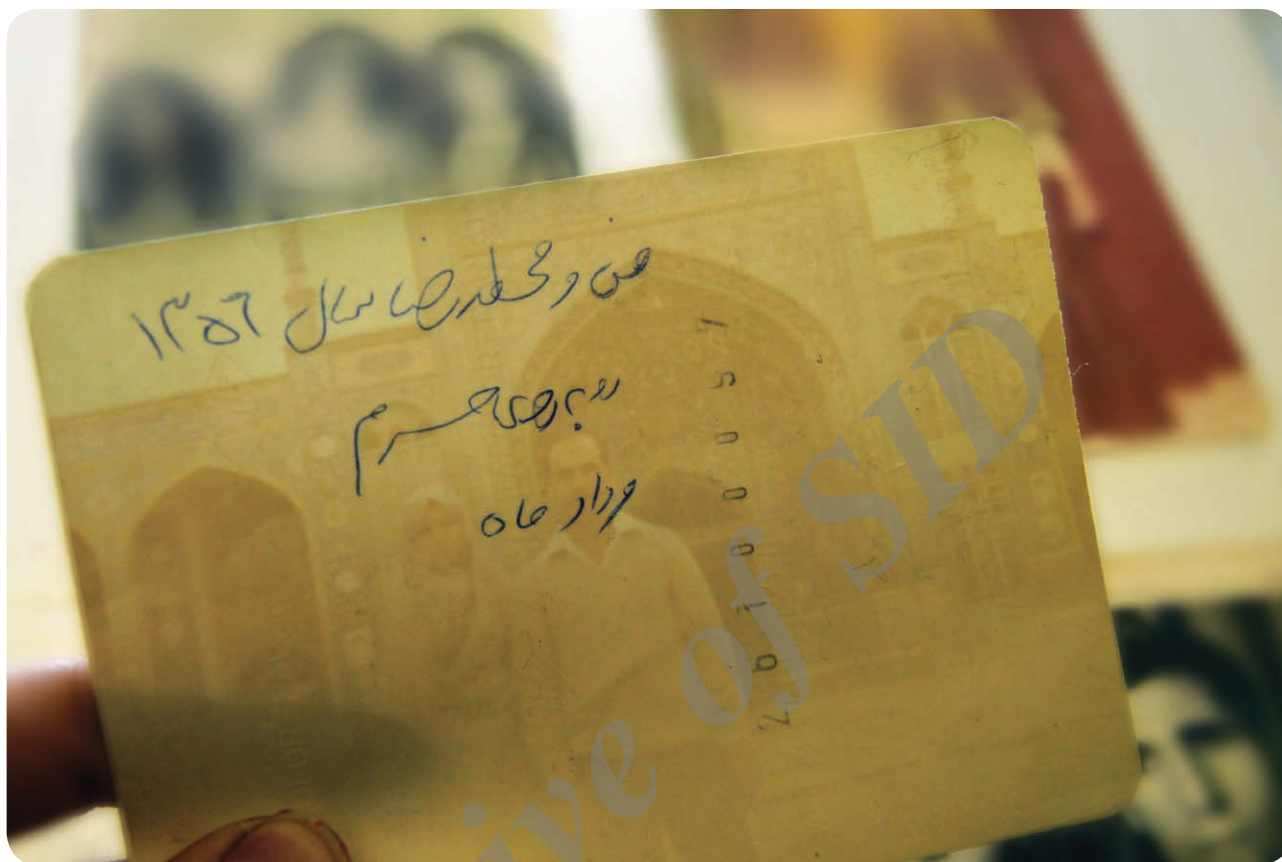 من و محمدرضا سال ۱۳۵۶
روبروی حرم
مرداد ماه
Archive of SID